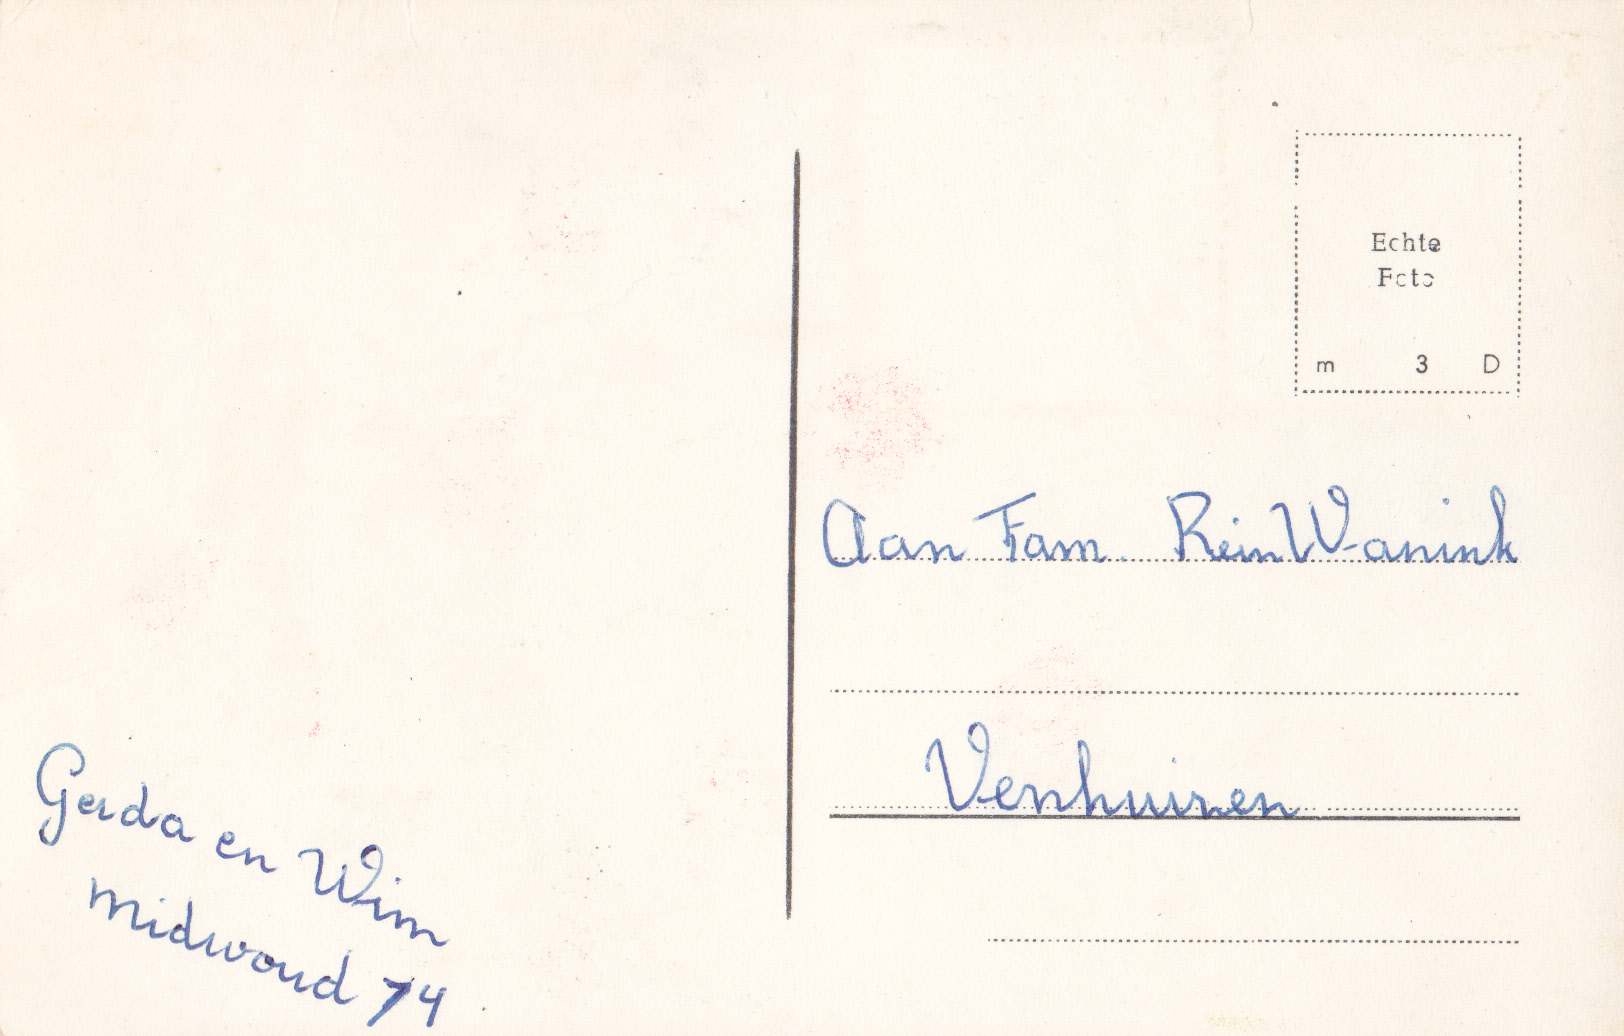 Echte
Foto
m 3 D
Aan Fam. Rein Wanink
Venhuizen
Gerda en Wim
Midwoud 74